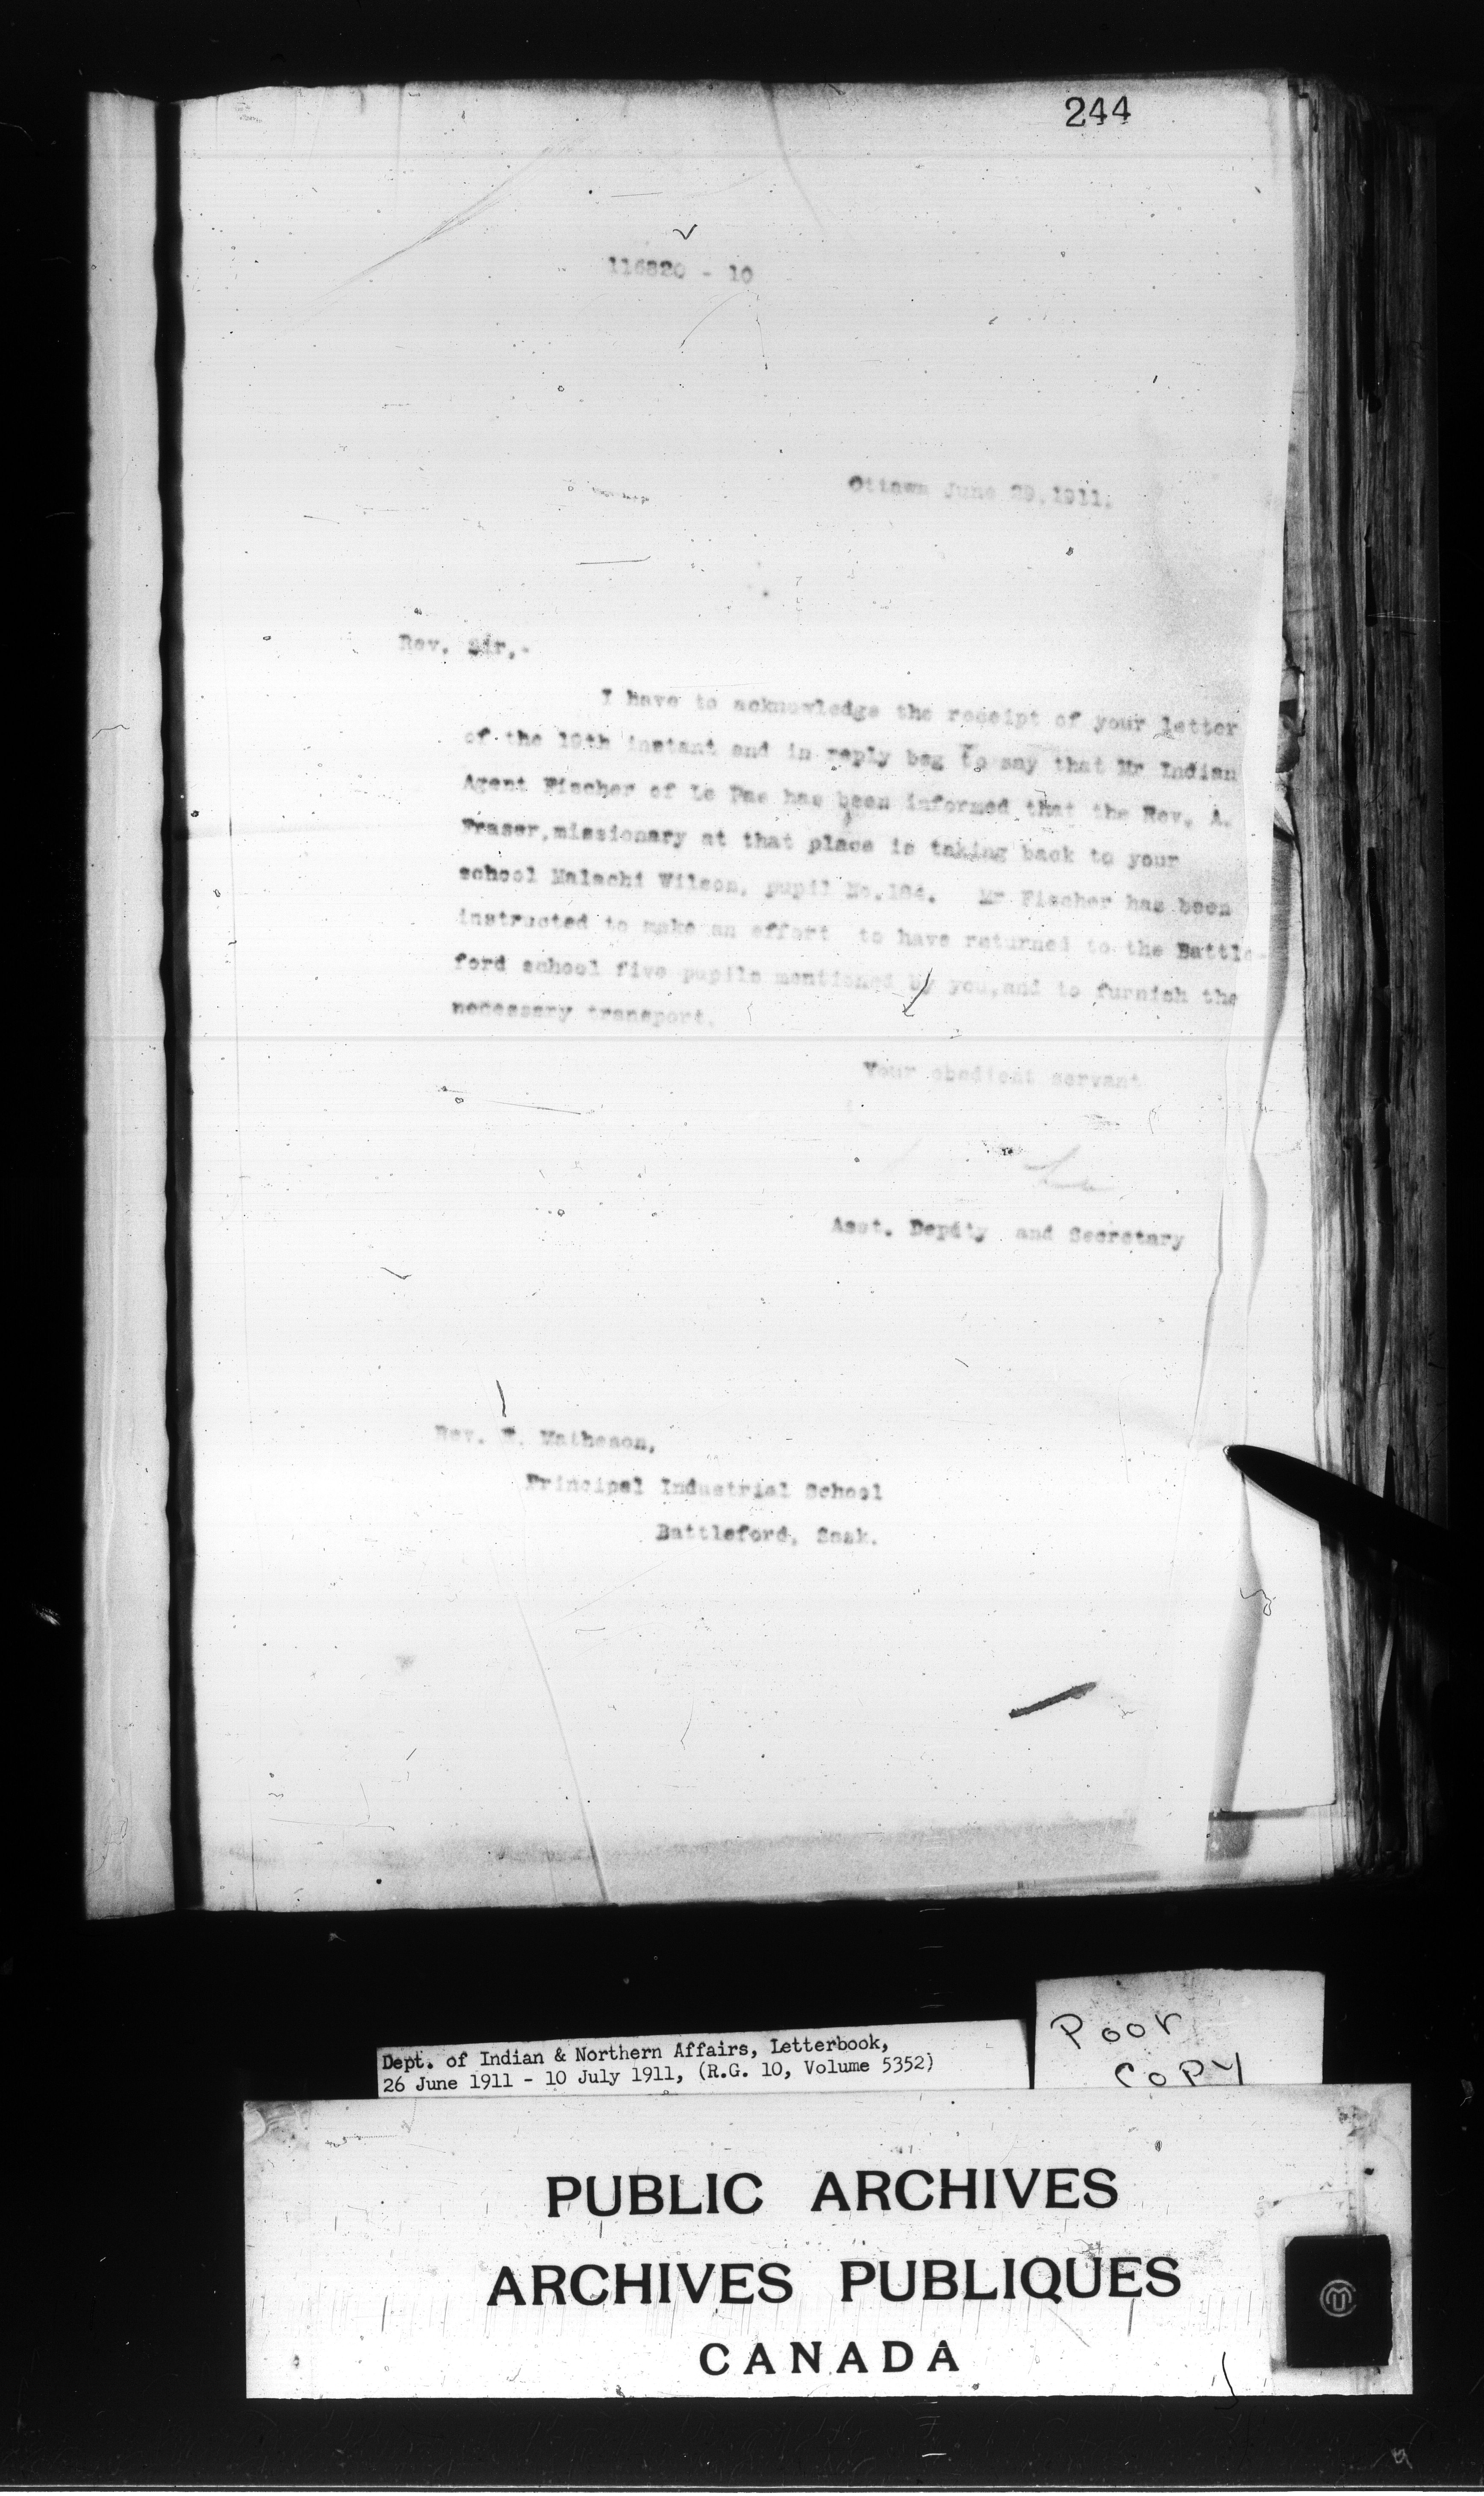 244
116820 - 10
Ottawa June 29, 1911.
Rev. Sir,-
I have to acknowledge the receipt of your letter
of the 19th instant and in reply beg to say that Mr Indian
Agent Fischer of Le Pas has been informed that the Rev. A.
Fraser, missionary at that place is taking back to your
school Malachi Wilson, pupil No.184. Mr Fischer has been
instructed to make an effort to have returned to the Battle-
ford school five pupils mentioned by you, and to furnish the
necessary transport.
Your obedient servant
Asst. Deputy and Secretary
Rev. E. Matheson,
Principal Industrial School
Battleford, Sask.
Dept. of Indian & Northern Affairs, Letterbook,
26 June 1911 - 10 July 1911, (R.G. 10, Volume 5352)
Poor
COPY
PUBLIC ARCHIVES
ARCHIVES PUBLIQUES
CANADA